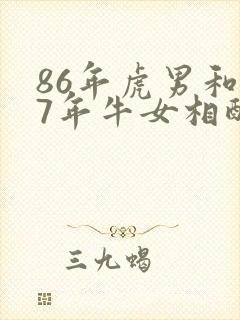 86年虎男和
7年牛女相配
三九蝎